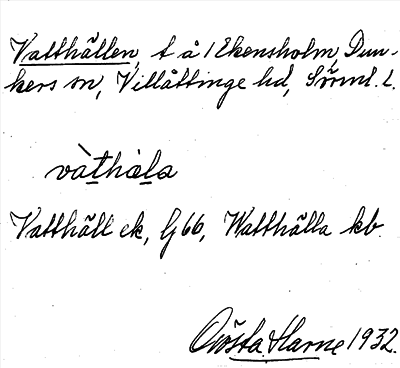 Vatthällen, t å 1 Ekensholm, Dun-
kers sn, Villåttinge hd, Sörml. L.
vàthála
Vatthäll ek, G 66, Watthälla kb.
Gösta Harne 1932.